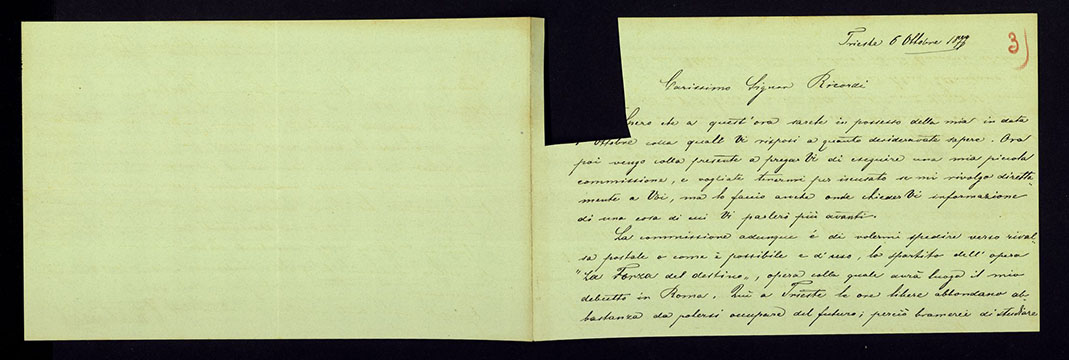 3)
Trieste 6 Ottobre 1877
Carissimo Signor Ricordi
Spero che a quest'ora sarete in possesso della mia in data
Ottobre colla quale Vi risposi a quanto desideravate sapere. Ora
poi vengo colla presente a pregar Vi di eseguire una mia piccola
commissione, e vogliate tenermi per iscusato se mi rivolgo diretta-
mente a Voi, ma lo faccio anche onde chieder Vi informazione
di una cosa di cui Vi parlerò più avanti.
La commissione adunque è di volermi spedire verso rival-
sa postale o come è possibile e d'uso, lo spartito dell'opera
"La Forza del destino", opera colla quale avrà luogo il mio
debutto in Roma. Quì a Trieste le ore libere abbondano ab-
bastanza da potersi occupare del futuro; perciò bramerei di studiare